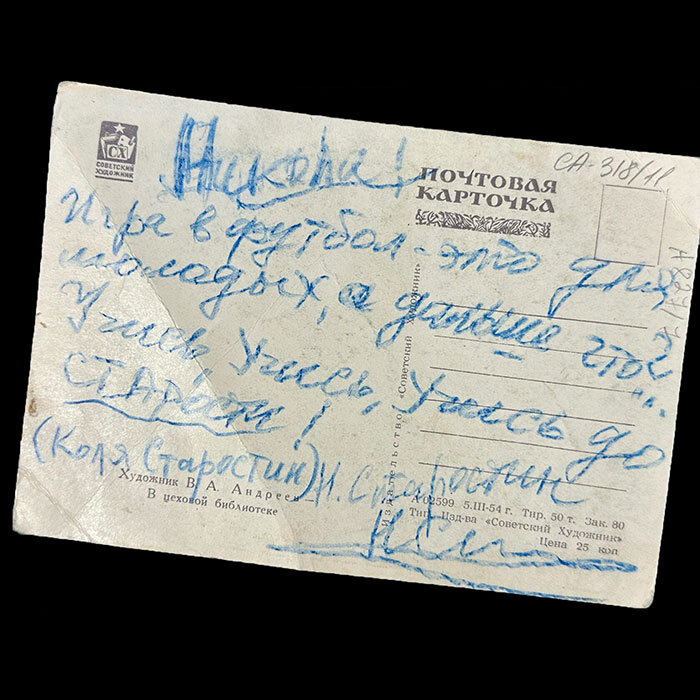 СХ
СОВЕТСКИЙ
ХУДОЖНИК
Николай!
ПОЧТОВАЯ
КАРТОЧКА
СА-318/11
Игра в футбол - это для
молодых, а дальше что?
Учись Учись, Учись до
СТАРОСТИ!
(Коля Старостин) Н. Старостин
Художник В. А. Андреев
В цеховой библиотеке
Издательство «Советский Художник»
А02599 5.III-54 г. Тир. 50 т. Зак. 80
Тип. Изд-ва «Советский Художник»
Цена 25 коп